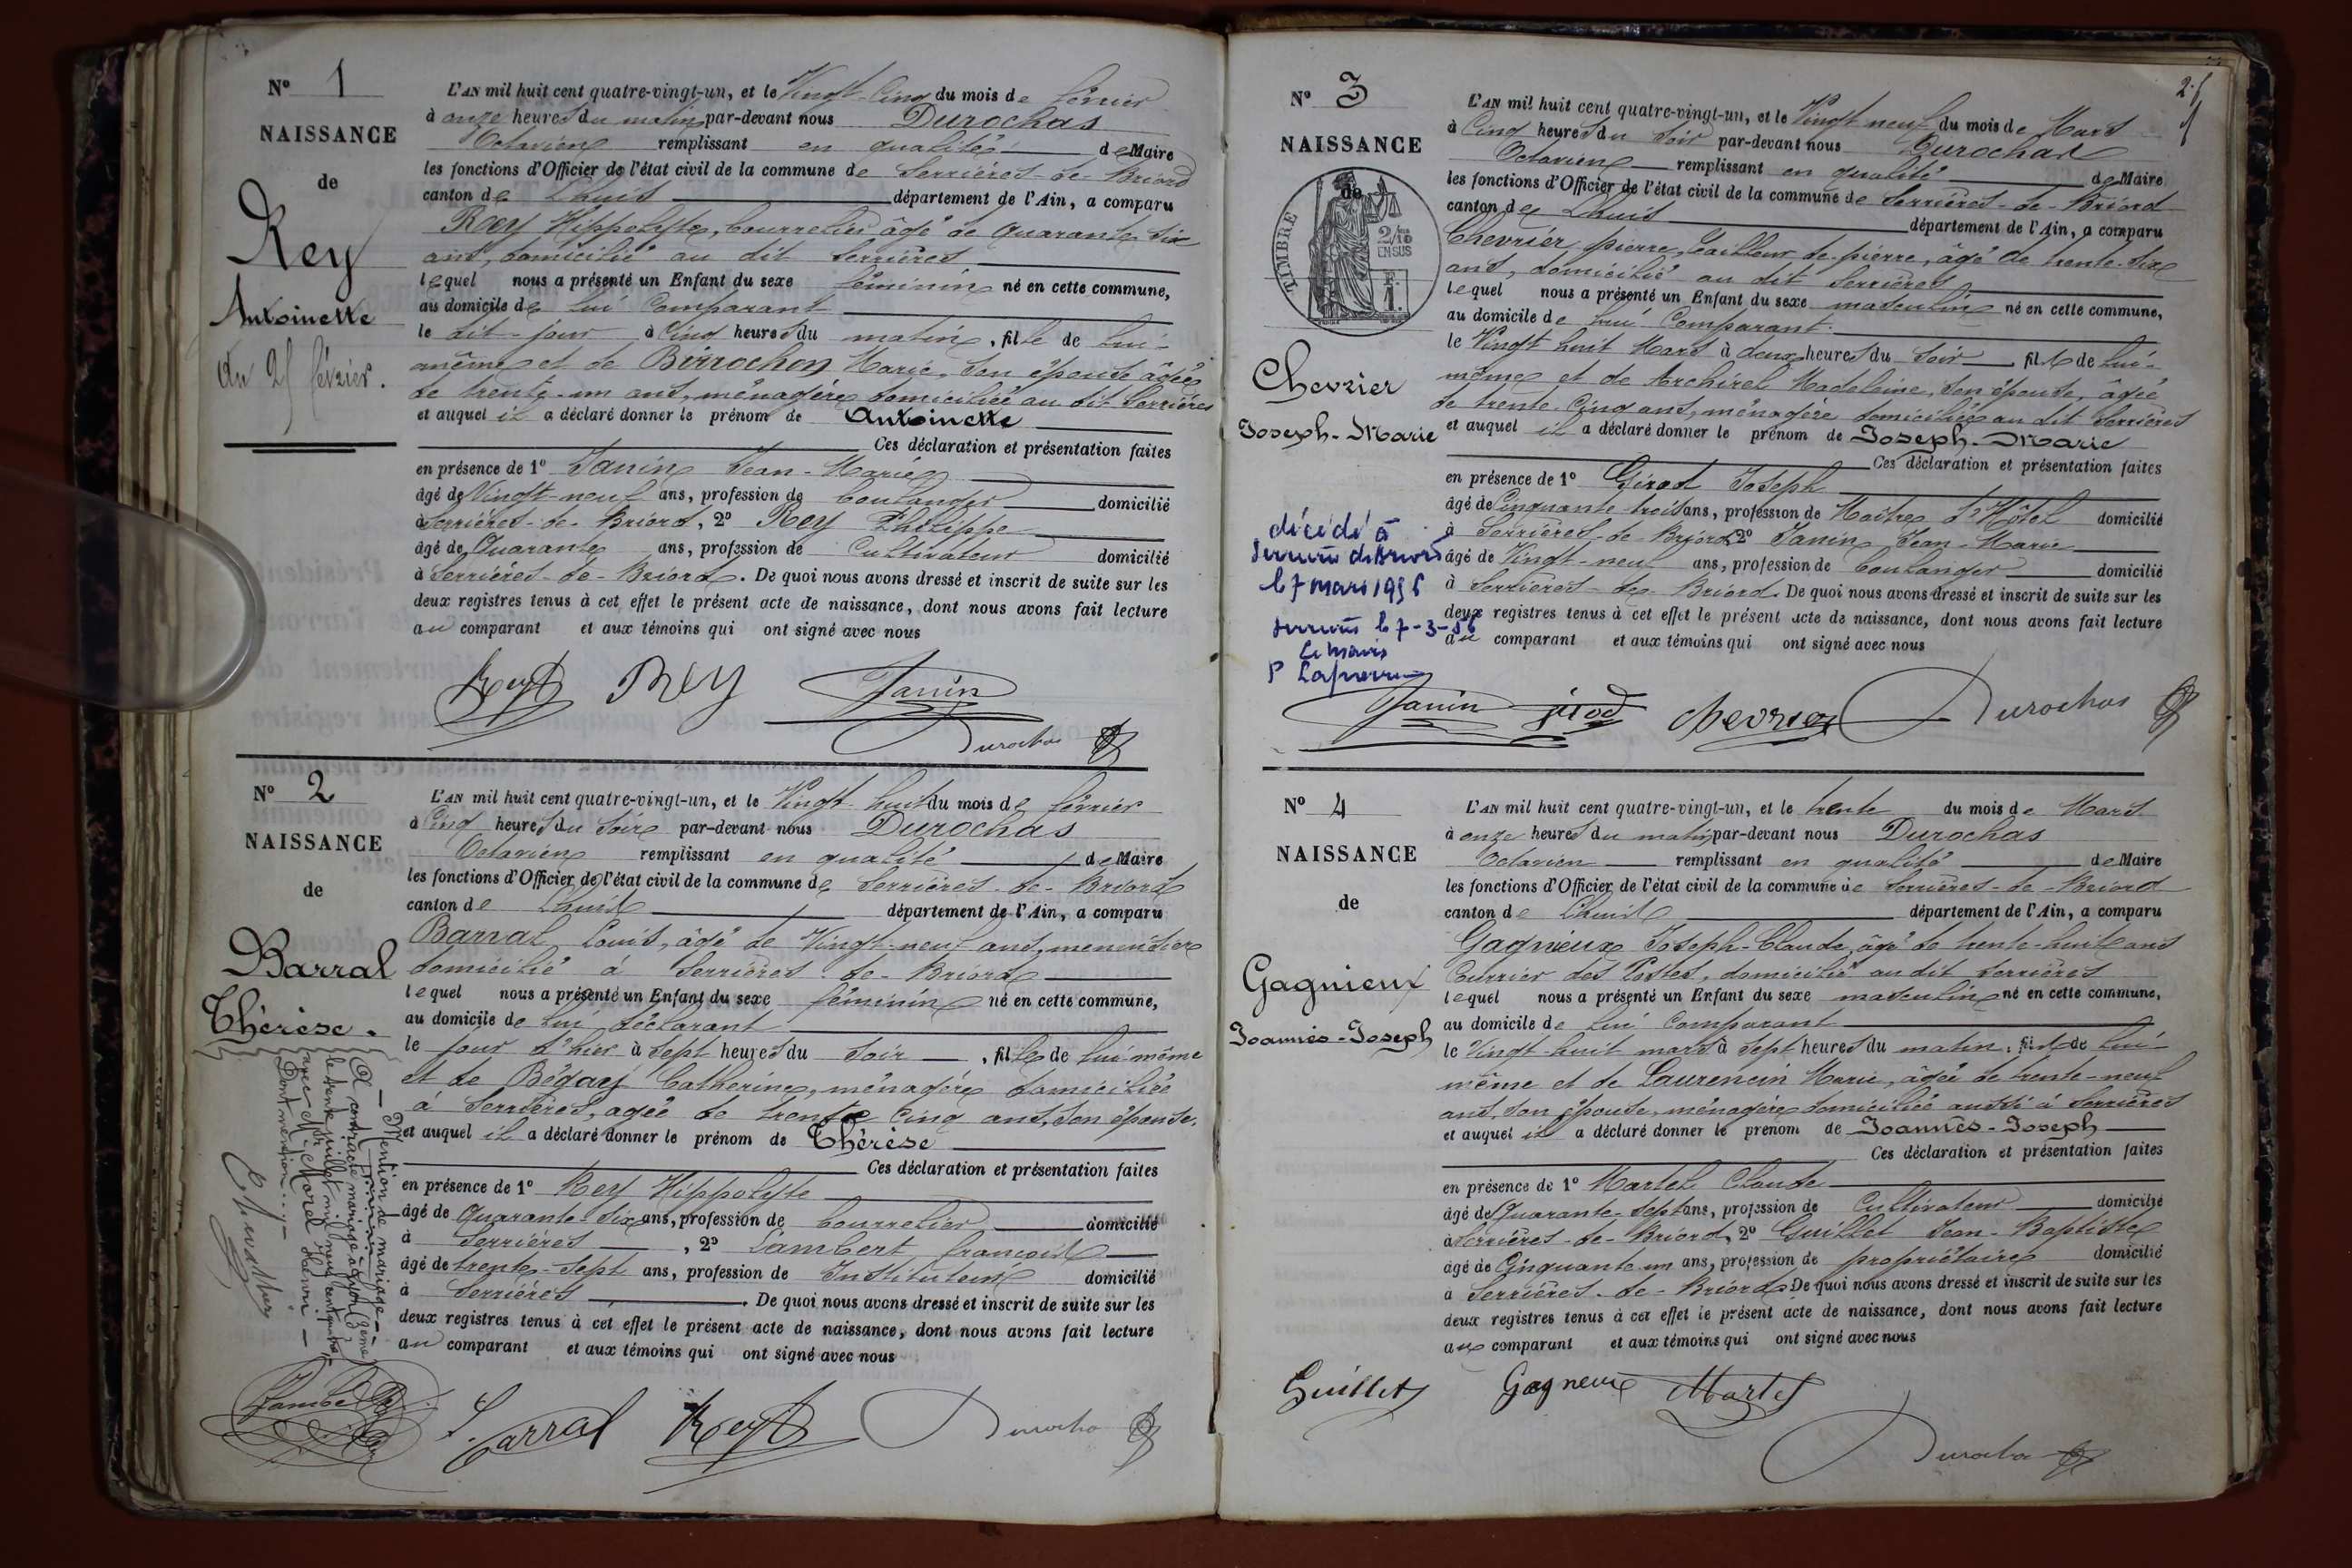 Nº 1
NAISSANCE
de
Rey
Antoinette
du 25 février.
L'AN mil huit cent quatre-vingt-un, et le Vingt-Cinq du mois de février
à onze heures du matin par-devant nous Durochas
Octavien remplissant en qualité de Maire
les fonctions d'Officier de l'état civil de la commune de Serrières-de-Briord
canton de Lhuis département de l'Ain, a comparu
Rey Hippolyte, bourrelier âgé de quarante six
ans, domicilié au dit Serrières
lequel nous a présenté un Enfant du sexe féminin né en cette commune,
au domicile de lui Comparant
le dit-jour à Cinq heures du matin, fille de lui-
même et de Birrochon Marie, son épouse âgée
de trente-un ans, ménagère domiciliée au dit Serrières
et auquel il a déclaré donner le prénom de Antoinette
Ces déclaration et présentation faites
en présence de 1º Janin Jean-Marie
âgé de Vingt-neuf ans, profession de boulanger domicilié
à Serrières-de-Briord, 2º Rey Philippe
âgé de Quarante ans, profession de Cultivateur domicilié
à Serrières-de-Briord. De quoi nous avons dressé et inscrit de suite sur les
deux registres tenus à cet effet le présent acte de naissance, dont nous avons fait lecture
au comparant et aux témoins qui ont signé avec nous
Rey REY Janin
Durochas
Nº 2
NAISSANCE
de
Barral
Thérèse.
L'AN mil huit cent quatre-vingt-un, et le Vingt-huit du mois de février
à Cinq heures du soir par-devant nous Durochas
Octavien remplissant en qualité de Maire
les fonctions d'Officier de l'état civil de la commune de Serrières-de-Briord
canton de Lhuis département de l'Ain, a comparu
Barral Louis, âgé de Vingt-neuf ans, menuisier
domicilié à Serrières-de-Briord
lequel nous a présenté un Enfant du sexe féminin né en cette commune,
au domicile de lui déclarant
le jour d'hier à sept heures du soir, fille de lui-même
et de Bégay Catherine, ménagère domiciliée
à Serrières, agée de trente Cinq ans, son épouse.
et auquel il a déclaré donner le prénom de Thérèse
Ces déclaration et présentation faites
en présence de 1º Rey Hippolyte
âgé de Quarante-six ans, profession de bourrelier domicilié
à Serrières, 2º Lambert françois
âgé de trente-sept ans, profession de Instituteur domicilié
à Serrières. De quoi nous avons dressé et inscrit de suite sur les
deux registres tenus à cet effet le présent acte de naissance, dont nous avons fait lecture
au comparant et aux témoins qui ont signé avec nous
— Mention de mariage —
A contracté mariage à Lyon
le trente juillet mil neuf cent quatre
avec Mr Morel Henri —
Dont mention
Lambert Barral Rey Durochas
25
Nº 3
NAISSANCE
de
TIMBRE
2/10
EN SUS
Chevrier
Joseph-Marie
L'AN mil huit cent quatre-vingt-un, et le Vingt neuf du mois de Mars
à Cinq heures du soir par-devant nous Durochas
Octavien remplissant en qualité de Maire
les fonctions d'Officier de l'état civil de la commune de Serrières-de-Briord
canton de Lhuis département de l'Ain, a comparu
Chevrier pierre, tailleur de pierre, âgé de trente-six
ans, domicilié au dit Serrières
lequel nous a présenté un Enfant du sexe masculin né en cette commune,
au domicile de lui Comparant
le Vingt huit Mars à deux heures du soir fils de lui-
même et de Archirel Madeleine, son épouse, âgée
de trente-Cinq ans, ménagère domiciliée au dit Serrières
et auquel il a déclaré donner le prénom de Joseph-Marie
Ces déclaration et présentation faites
en présence de 1º Girod Joseph
âgé de Cinquante-trois ans, profession de Maître d'Hôtel domicilié
à Serrières-de-Briord 2º Janin Jean-Marie
âgé de Vingt-neuf ans, profession de boulanger domicilié
à Serrières-de-Briord. De quoi nous avons dressé et inscrit de suite sur les
deux registres tenus à cet effet le présent acte de naissance, dont nous avons fait lecture
au comparant et aux témoins qui ont signé avec nous
décédé à
Serrières de Briord
le 7 mars 1956
Serrières le 7-3-56
Le maire
Janin jirod chevrier Durochas
Nº 4
NAISSANCE
de
Gagnieux
Joannès-Joseph
L'AN mil huit cent quatre-vingt-un, et le trente du mois de Mars
à onze heures du matin par-devant nous Durochas
Octavien remplissant en qualité de Maire
les fonctions d'Officier de l'état civil de la commune de Serrières-de-Briord
canton de Lhuis département de l'Ain, a comparu
Gagnieux Joseph-Claude, âgé de trente-huit ans
Courrier des Postes, domicilié au dit Serrières
lequel nous a présenté un Enfant du sexe masculin né en cette commune,
au domicile de lui Comparant
le Vingt-huit mars à sept heures du matin, fils de lui-
même et de Laurencin Marie, âgée de trente-neuf
ans, son épouse, ménagère domiciliée aussi à Serrières
et auquel il a déclaré donner le prénom de Joannès-Joseph
Ces déclaration et présentation faites
en présence de 1º Martel Claude
âgé de Quarante-sept ans, profession de Cultivateur domicilié
à Serrières-de-Briord, 2º Guillet Jean-Baptiste
âgé de Cinquante un ans, profession de propriétaire domicilié
à Serrières-de-Briord De quoi nous avons dressé et inscrit de suite sur les
deux registres tenus à cet effet le présent acte de naissance, dont nous avons fait lecture
au comparant et aux témoins qui ont signé avec nous
Guillet Gagneux Martel
Durochas